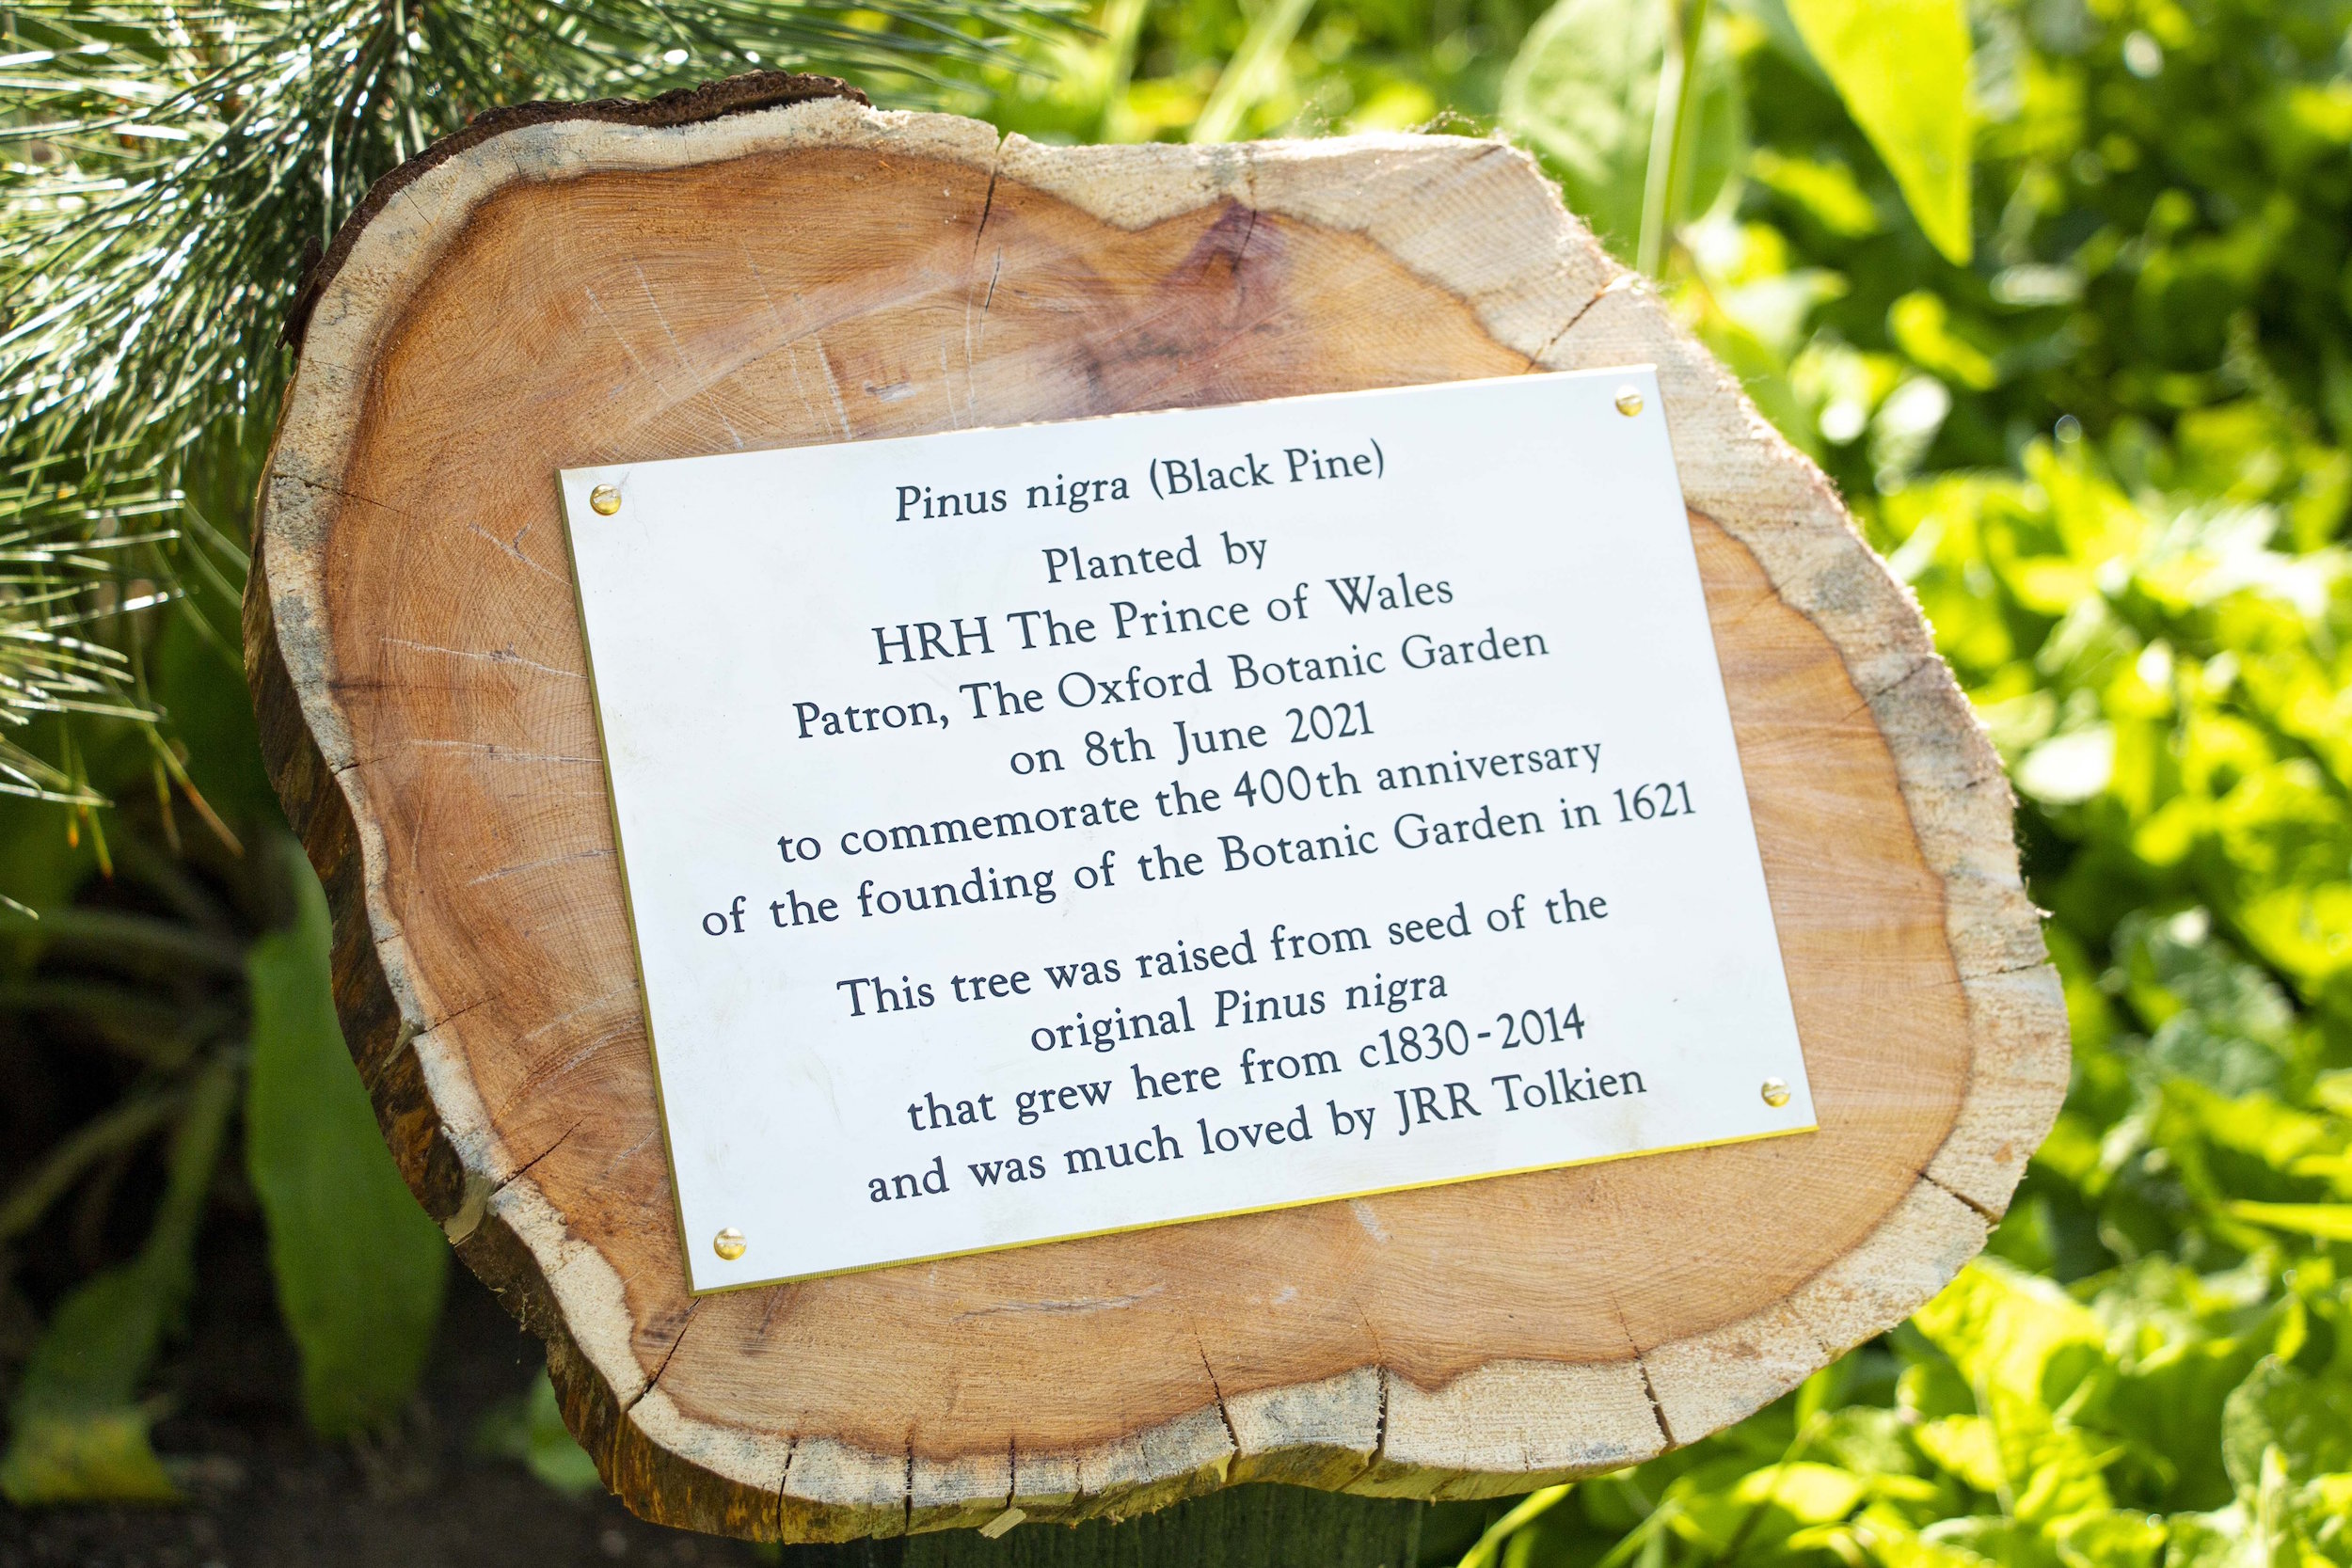 Pinus nigra (Black Pine)
Planted by
HRH The Prince of Wales
Patron, The Oxford Botanic Garden
on 8th June 2021
to commemorate the 400th anniversary
of the founding of the Botanic Garden in 1621
This tree was raised from seed of the
original Pinus nigra
that grew here from c1830-2014
and was much loved by JRR Tolkien